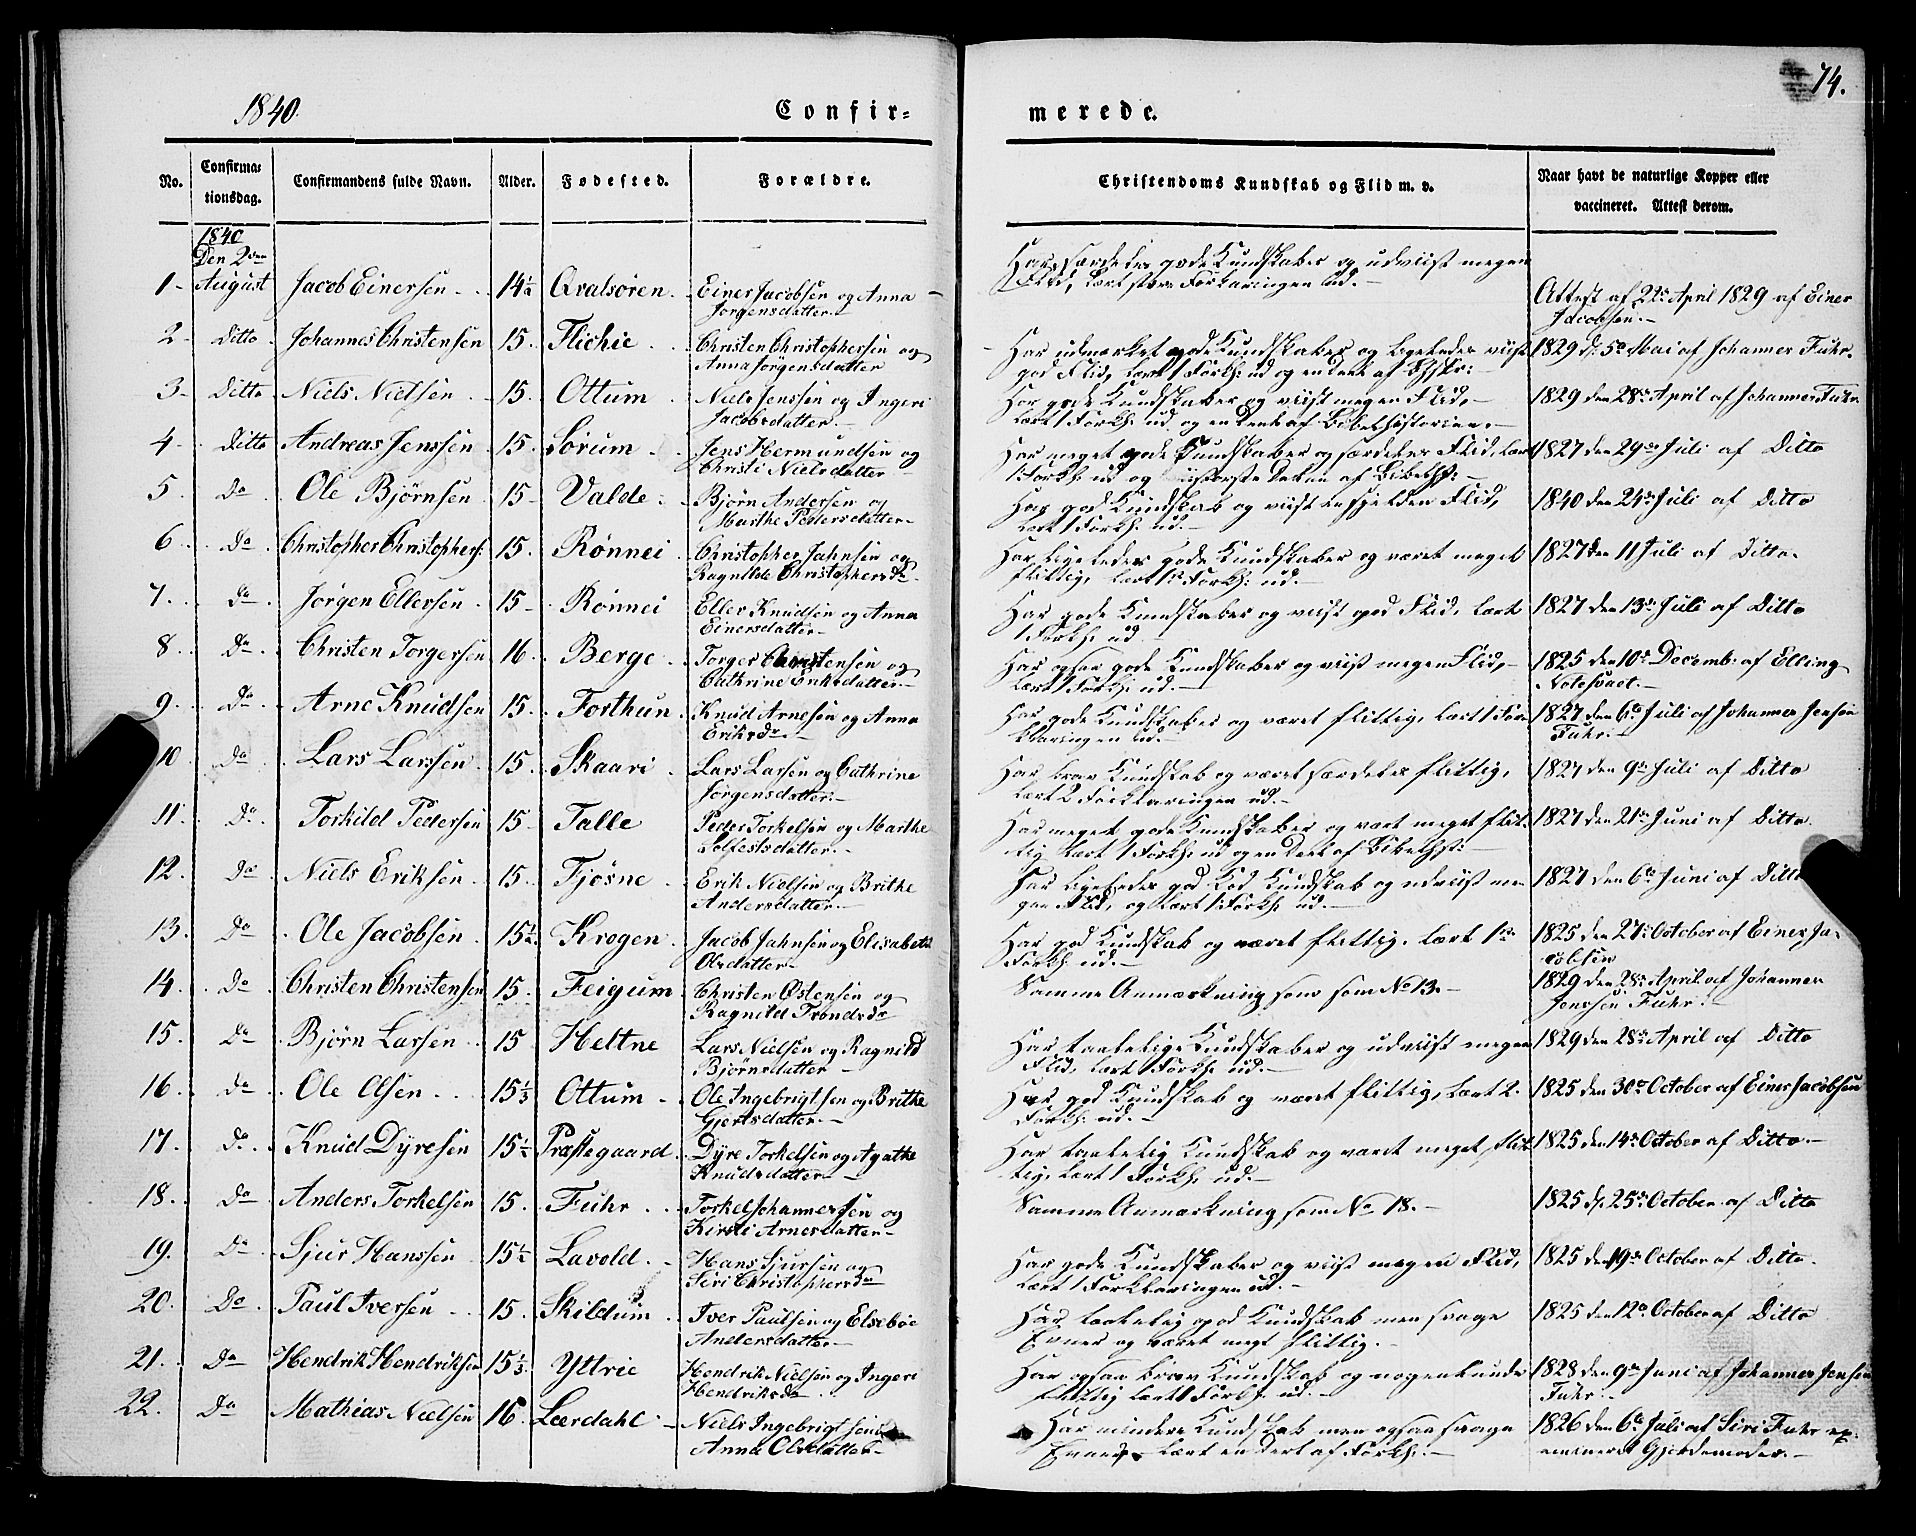 74.
1840.
Confir- merede.
No. Confirma- tionsdag. Confirmandens fulde Navn. Alder. Fødested. Forældre. Christendoms Kundskab og Flid m. v. Naar havt de naturlige Kopper eller vaccineret. Attest derom.
1840
Den 2den
1 - August Jacob Einersen 14½ Qvalsøren. Einer Jacobsen og Anna Jørgensdatter.- Har særdeles gode Kundskaber og udviist megen Flid, lært store Forklaringen ud.- Attest af 22de April 1829 af Einer Jacobsen.-
2 - Ditto Johannes Christensen 15. Flichie Christen Christophersen og Anna Jørgensdatter Har udmærket gode Kundskaber og ligeledes viist god Flid, lært 1 Forkl: ud og en Deel af 1829 d. 5te Mai af Johannes Fuhr.
3 - Ditto Niels Nielsen 15. Ottum Niels Jenssen og Ingeri Jacobsdatter.- Har gode Kundskaber og viist megen Flid, lært 1 Forkl: ud og en Deel af Bibelhistorien.- 1829 den 28de April af Johannes Fuhr
4 - Ditto Andreas Jenssen 15. Sørum Jens Hermundsen og Christi Nielsdatter Har meget gode Kundskaber og særdeles Flid, lært 1 Forkl: ud og første Delen af Bibelh: 1827 den 29de Juli af Ditto
5 Do Ole Bjørnsen 15 Valde Bjørn Andersen og Marthe Pedersdatter- Har god Kundskab og viist Flid, lært 1 Forkl: ud.- 1840 den 24de Juli af Ditto
6 Do Christopher Christophers: 15. Rønnei Christopher Jahnsen og Ragnilde Christophersdr Har ligeledes gode Kundskaber og været meget flittig, lært 1 Forkl: ud.- 1827 den 11 Juli af Ditto.
7. Do Jørgen Ellersen 15 Rønnei Eller Knudsen og Anna Einersdatter- Har gode Kundskaber og viist god Flid, lært 1 Forkl: ud.- 1827 den 13de Juli af Ditto
8 Do Christen Torgersen 16. Berge Torger Christensen og Cathrine Eriksdatter- Har ogsaa gode Kundskaber og viist megen Flid, lært 1 Forkl: ud.- 1825 den 10de Decemb: af Elling
9. Do Arne Knudsen 15. Forthun Knud Arnesen og Anna Eriksdr Har gode Kundskaber og været flittig, lært 1 For- klaringen ud.- 1827 den 6te Juli af Johannes Jensen Fuhr.-
10 Do Lars Larssen 15. Skaari Lars Larsen og Cathrine Jørgensdatter.- Har brav Kundskab og været særdeles flittig, lært 2 Forklaringen ud.- 1827 den 9de Juli af Ditto
11. Do Torkild Pedersen 15 Talle Peder Torkelsen og Marthe Solfestsdatter.- Har meget gode Kundskaber og vært meget flit- tig lært 1 Forkl: ud og en Deel af Bibelhst: 1827 den 21de Juni af Ditto
12. Do Niels Eriksen 15. Fjøsne Erik Nielsen og Brithe Andersdatter.- Har ligeledes god Kundskab og udviist me- gen Flid, og lært 1 Forkl: ud.- 1827 den 6te Juni af Ditto
13. Do Ole Jacobsen 15½ Krogen Jacob Jahnsen og Elisabeth Olsdatter- Har god Kundskab og været flittig, lært 1 Forkl: ud.- 1825 den 27de October af Einer Ja- cobsen
14. Do Christen Christensen 15. Feigum Christen Østensen og Ragnild Trondsdr Samme Anmærkning som som No 13.- 1829 den 28de April af Johannes Jenssen Fuhr.
15. Do Bjørn Larsen 15 Heltne Lars Nielsen og Ragnild Bjørnsdatter Har taalelige Kundskaber og udviist megen Flid, lært 1 Forkl: ud.- 1829 den 28de April af Ditto
16. Do Ole Olsen 15⅓ Ottum Ole Ingebrigtsen og Brithe Gjertsdatter.- Har god Kundskab og været flittig, lært 2. Forkl: ud.- 1825 den 30te October af Einer Jacobsen
17. Do Knud Dyresen 15½ Præstegaard Dyre Torkelsen og Agathe Knudsdatter- Har taalelig Kundskab og været meget flit- tig, lært 1 Forkl: ud.- 1825 den 14de October af Ditto.-
18. Do Anders Torkelsen 15. Fuhr Torkel Johannessen og Kirsti Arnesdatter- Samme Anmærkning som No 18.- 1825 d. 25de October af Ditto
19. Do Sjur Hanssen 15½ Lavold Hans Sjursen og Siri Christophersdr Har gode Kundskaber og viist megen Flid, lært 1 Forklaringen ud.- 1825 den 19de October af Ditto.
20. Do Paul Iversen 15. Skildum Iver Paulsen og Elsebøe Andersdatter- Har taalelig god Kundskab men svage Evner og været megt flittig.- 1825 den 12te October af Ditto
21. Do Hendrik Hendriksen 15⅓ Yttrie Hendrik Nielsen og Ingeri Hendriksdr Har ogsaa brav Kundskab og nogenlunde flittig lært 1 Forkl: ud.- 1828 den 9de Juni af Johannes Jensen Fuhr.-
22. Do Mathias Nielsen 16. Leerdahl Niels Ingebrigtsen Anna Olsdatter- Har mindre Kundskab men ogsaa svage Evner, lært en Deel af Forkl:- 1826 den 6te Juli af Siri Fuhr ex- amineret Gjordemoder.-